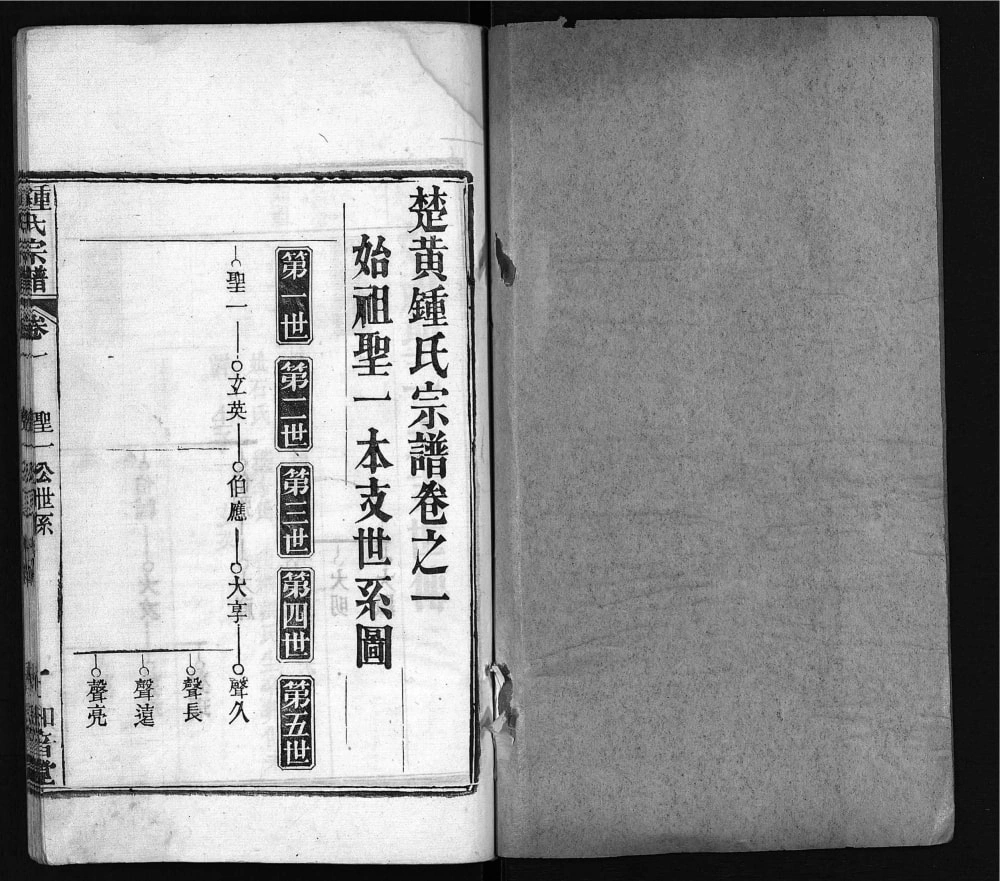 楚黄鍾氏宗譜卷之一
始祖聖一本支世系圖
第一世
第二世
第三世
第四世
第五世
聖一
立英
伯應
大享
聲久
聲長
聲遠
聲亮
鍾氏宗譜
卷一
聖一公世系
一
和音堂